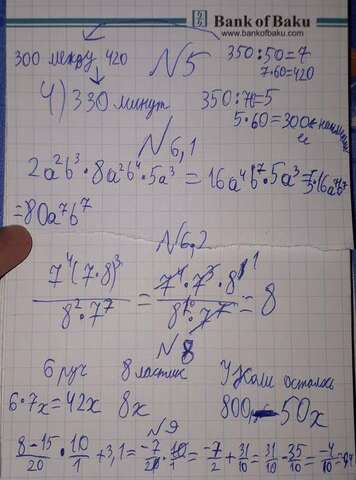 Bank of Baku
www.bankofbaku.com
300 между 420
N5
350:50=7
7·60=420
4) 330 минут
350:70=5
5·60=300
N6,1
2a²b³·8a²b⁴·5a³=16a⁴b⁷·5a³=5·16a⁷b⁷
=80a⁷b⁷
N6,2
7⁴(7·8)³/8²·7⁷=7⁴·7³·8³/8²·7⁷=8
N8
6 руч 8 ластик У Жали осталось
6·7x=42x 8x 800-50x
N9
8-15/20·10/1+3,1=-7/20·10/1=-7/2+31/10=31/10-35/10=-4/10=-0,4